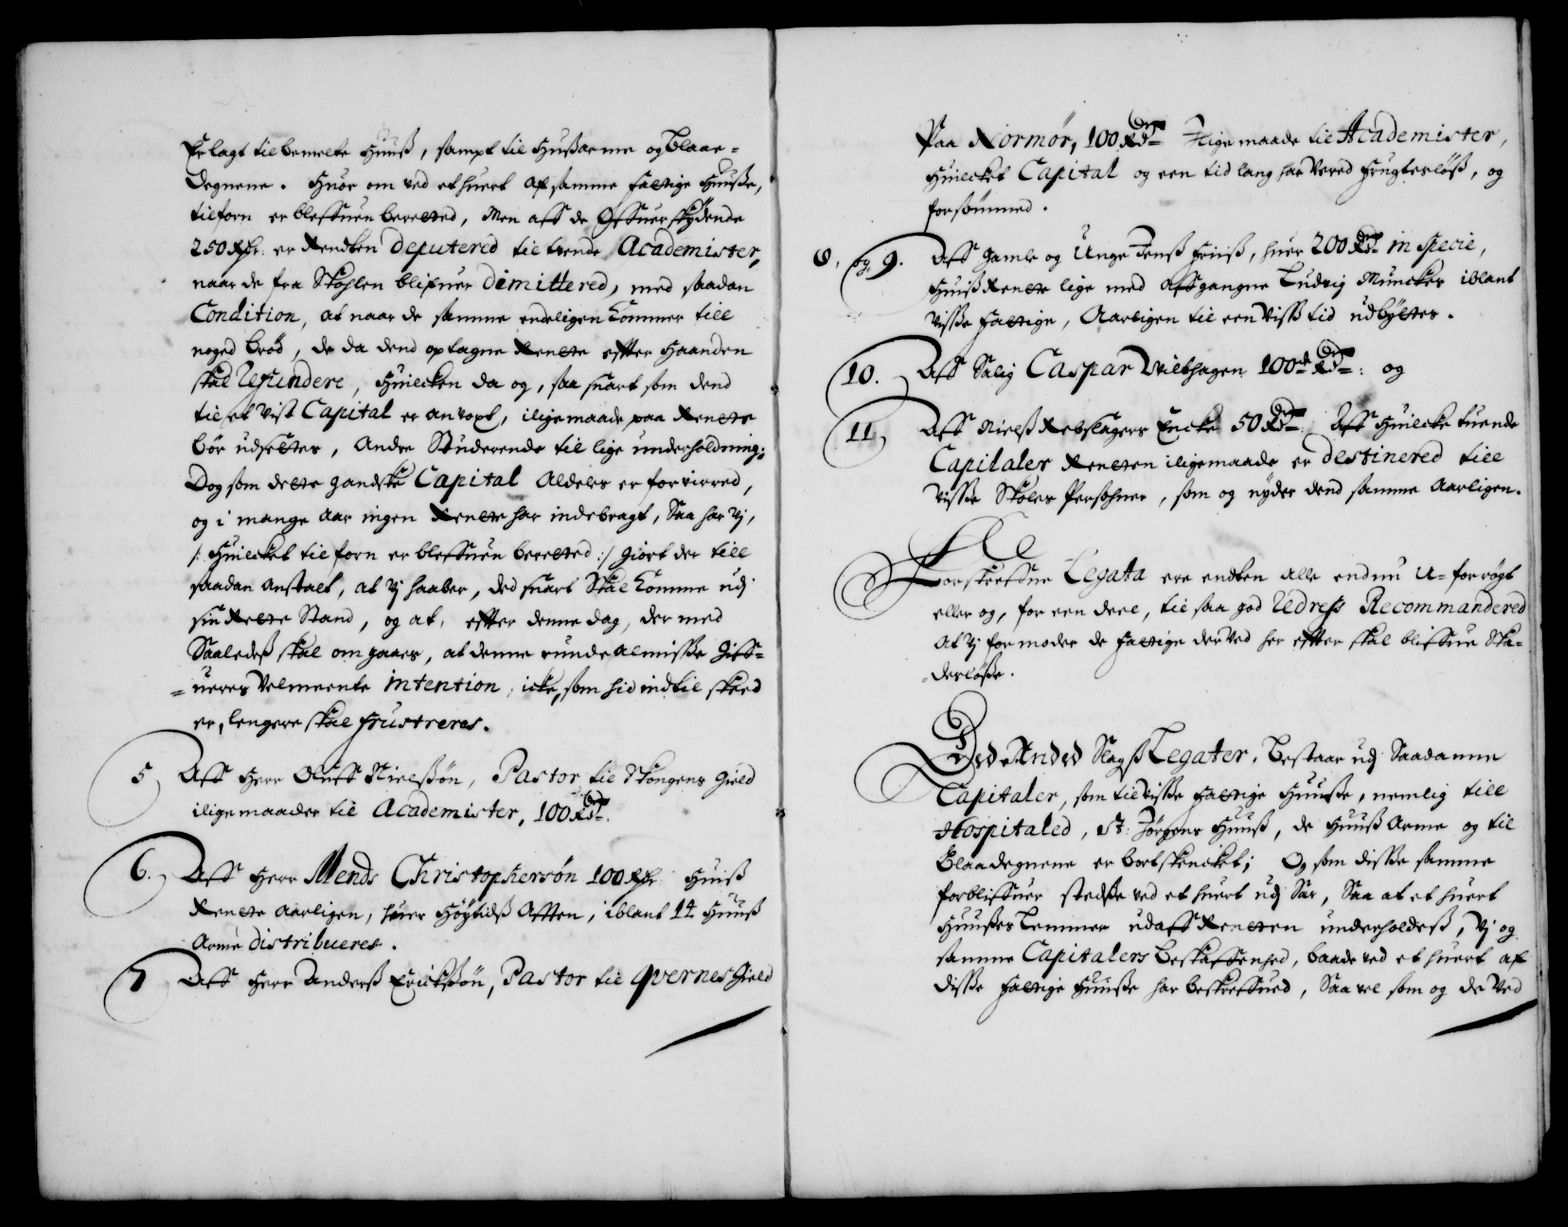 Er lagt til bemelte Huuß, sampt til Hußarme og blaae-
Degnene. Huor om ved et huert af samme fattige Huuße,
tilforn er bleffuen berettet, Men aff de Offuerskydende
250 Rdr. er Rendten deputered til tvende Academister,
naar de fra Skohlen blifuer dimittered, med saadan
Condition, at naar de samme endeligen kommer till
noged brød, de da dend optagne Rente effter Haanden
skal refundere, Huilcken da og, saa snart som dend
til et vist Capital er anvoxt, iligemaade paa Rente
bør udsettes, Andre Studerende til lige underholdning;
Dog som dette gandske Capital Aldeles er forvirred,
og i mange Aar ingen Rente har indebragt, Saa har Vj,
/: Huilcket tilforn er bleffuen berettet :/ giort der till
saadan Anstalt, at Vj haaber, ded snart Skal komme udj
sin Rette Stand, og at, effter denne dag, der med
Saaledeß skal omgaaes, at denne runde almisse Giff-
=ueres Velmeente intention, icke, som hid indtil skeed
er, lengere skal frustreres.
5 Aff Herr Oluff Nielßøn, Pastor til Stongens gield
iligemaader til Academister, 100 Rdr.
6. Aff Herr Mends Christophersøn 100 Rdr. Huiß
Rente Aarligen, huer Høytidß Afften, iblant 14 Huuß
Arme distribueres.
7 Aff Herr Anderß Erickßøn, Pastor til Qvernes Gield
Paa Normør, 100 Rdr. Iligemaade til Academister,
Huilcket Capital og een tid lang har Vered Frugtesløß, og
forsømmed.
8, og 9. Aff Gamle og Unge Jenß Friiß, huer 200 Rdr. in specie,
Huiß Rente lige med Affgangne Ludvig Munckes iblant
Visse Fattige, Aarligen til een Viss tid udbyttes.
10. Aff Salig Caspar Vilthagen 100de Rdr.: og
11, Aff Nielß Rebslagers Encke 50 Rdr. Aff Huilcke tuende
Capitaler Renten iligemaade er destinered till
Visse Skoles Persohner, som og nyder dend samme Aarligen.
Forskreffne Legata ere endten alle endnu u-forrøgt
eller og, for een deel, til saa god redress Recommandered
At Vj formoder de fattige derved her effter skal bliffue Ska-
-desløße.
Ded Anded Slagß Legater, bestaar udj Saadanne
Capitaler, som til Visse fattige Huuße, nemlig till
Hospitaled, St: Jørgens Huuß, de Huuß Arme og til
Blaadegnene er bortskencket; Og som disse samme
forbliffuer stedse ved et huert udj Sær, Saa at et huert
Huußes Lemmer udaff Renten underholdeß, Vj og
samme Capitalers beskaffenhed, baade ved et huert af
disse fattige Huuße har beskreffued, Saavel som og de Ved